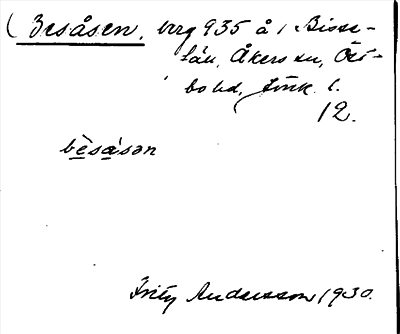 ( Besåsen, berg 935 å 1 Bisse-
län, Åkers sn, Öst-
bo hd, Jönk. l.
12.
bèsåsən
Fritz Andersson 1930.